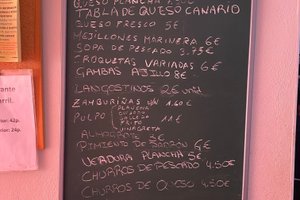 QUESO PLANCHA
TABLA DE QUESO CANARIO
QUESO FRESCO 5€
MEJILLONES MARINERA 6€
SOPA DE PESCADO 3.75€
CROQUETAS VARIADAS 6€
GAMBAS AJILLO 8€
LANGOSTINOS 2€ unid
ZAMBURIÑAS u/n 1.60€
PULPO
PLANCHA
GALLEGA
FRITO
VINAGRETA
11€
ALMOGROTE 5€
PIMIENTO DE PADRÓN 6€
VERDURA PLANCHA 5€
CHURROS DE PESCADO 4.50€
CHURROS DE QUESO 4.50€
ante
rril.
rior: 42p.
erior: 24p.